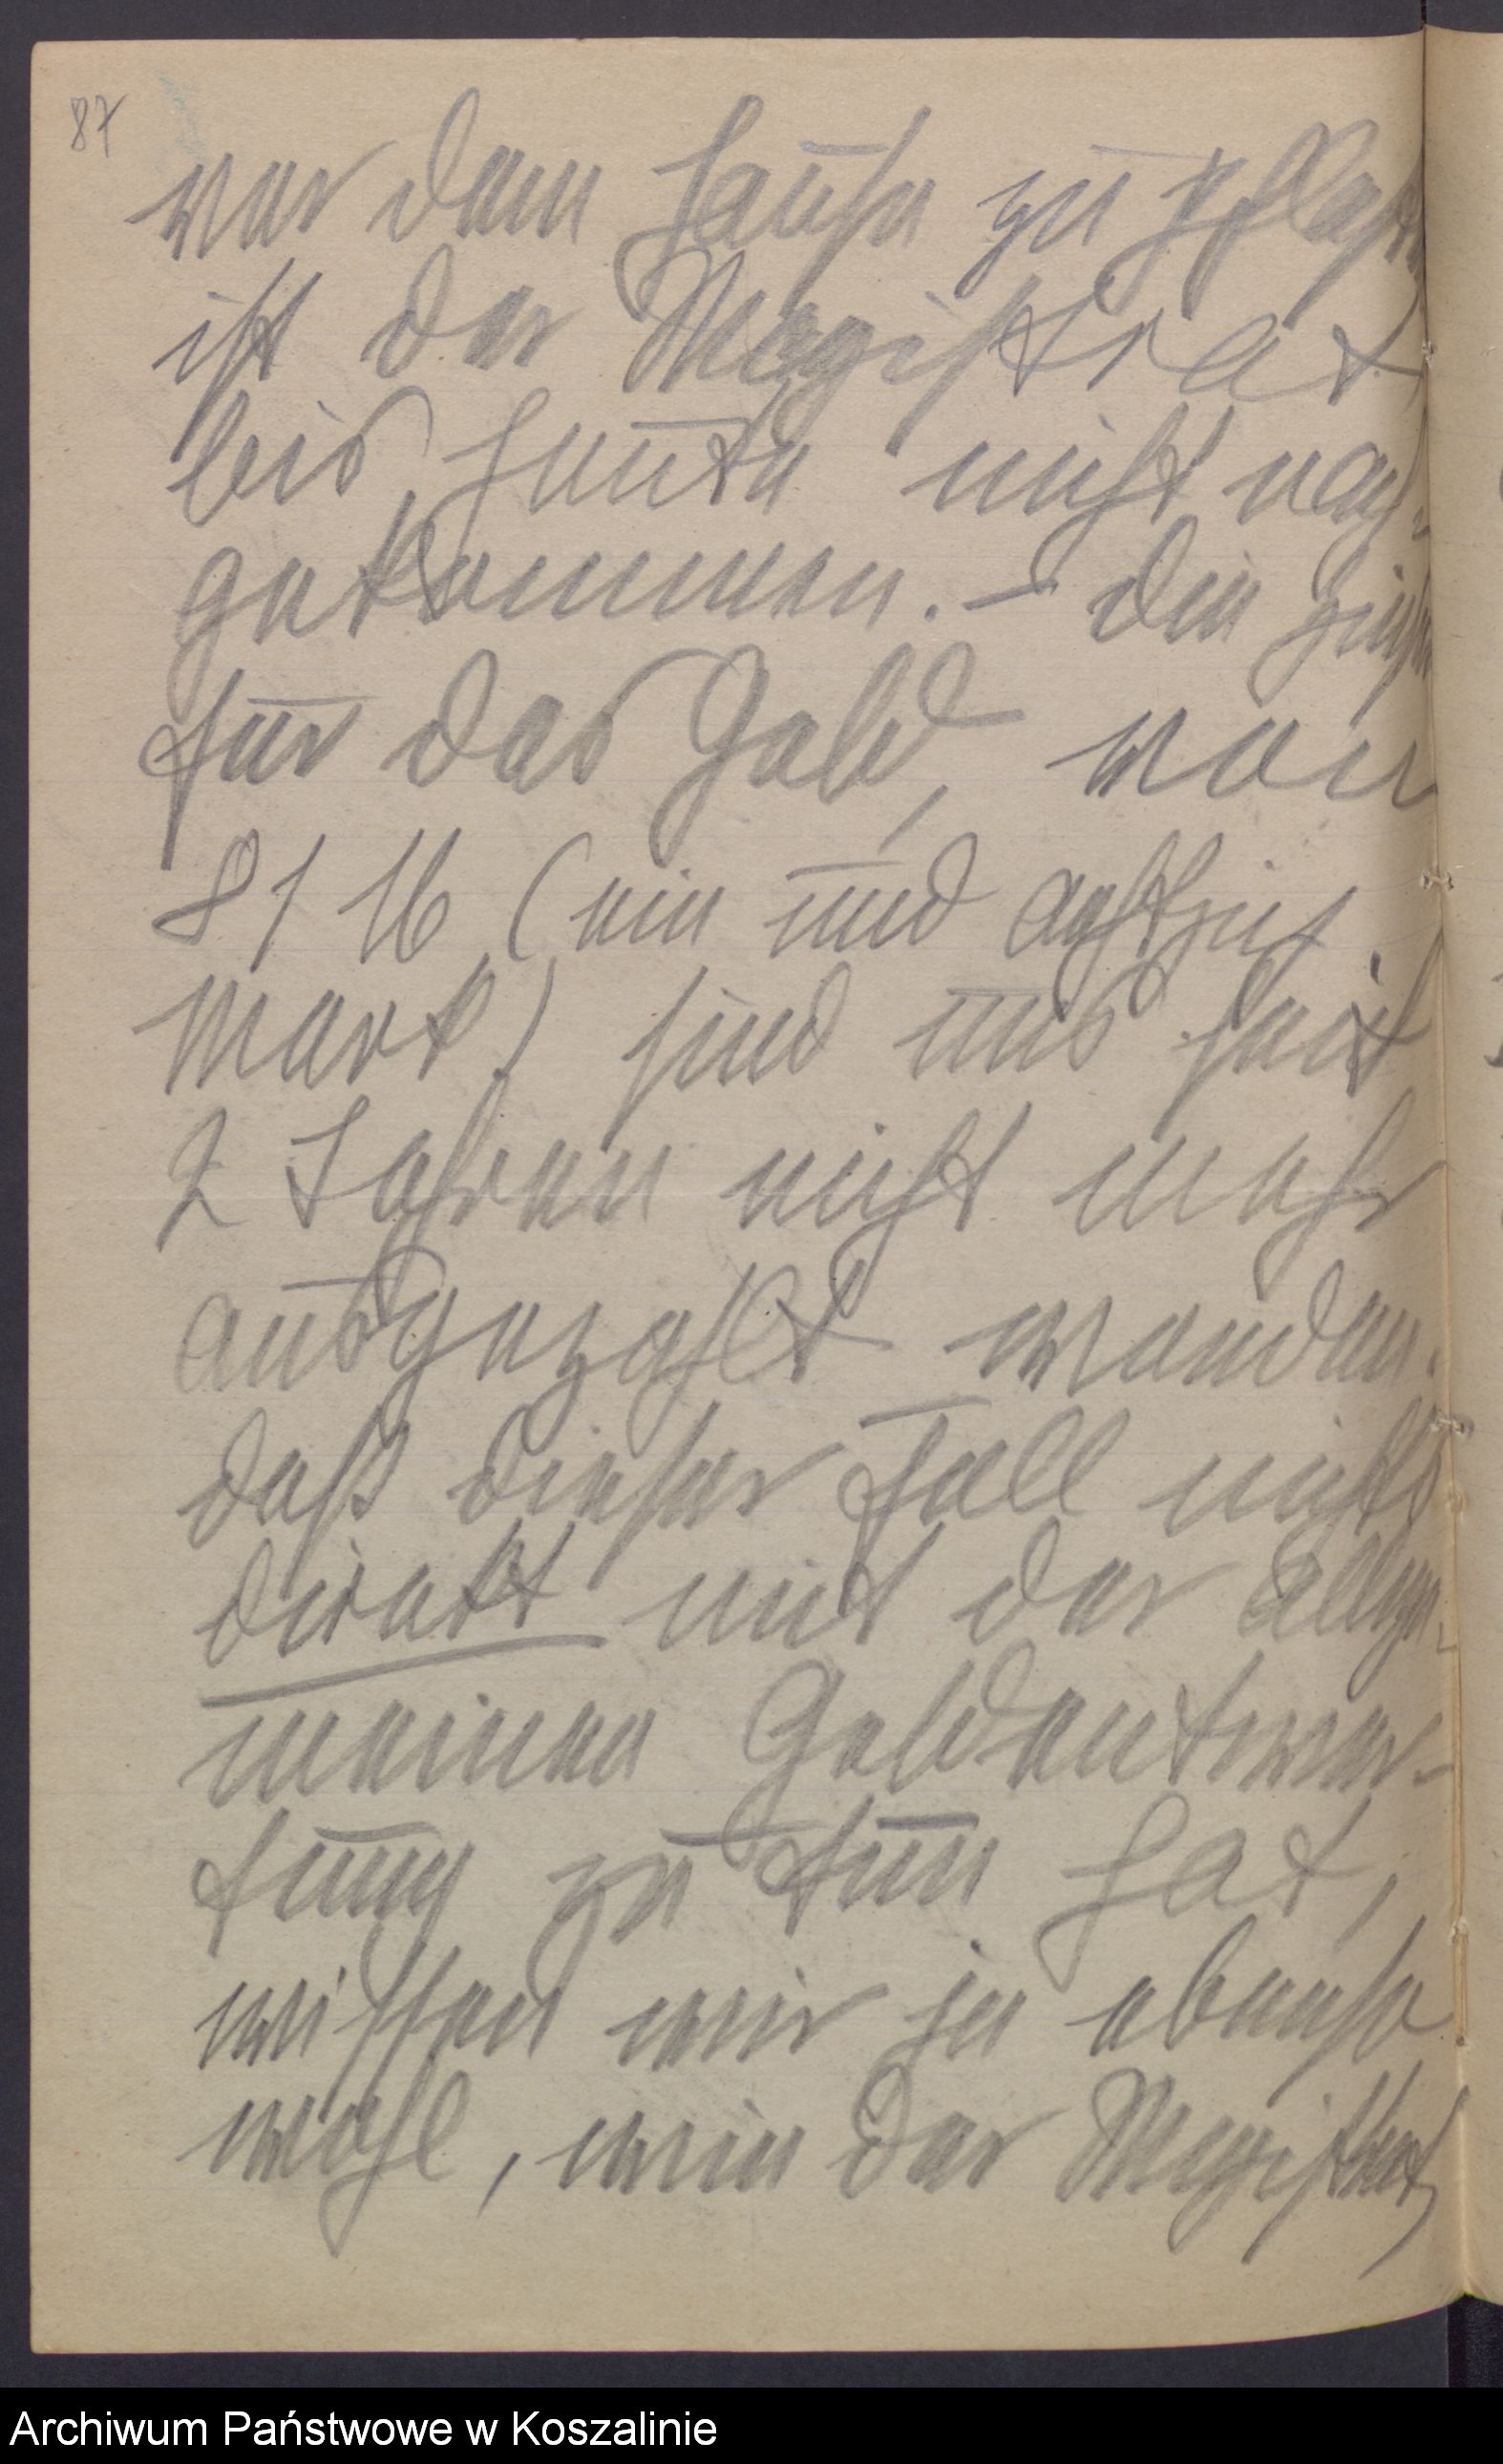 87
vor dem Hause zu pflastern
ist der Magistrat
bis heute nicht nach-
gekommen. – Die Zinsen
für das Geld, von
81 M (ein und achtzig
Mark) sind uns seit
2 Jahren nicht mehr
ausgezahlt worden.
Daß dieser Fall nichts
direkt mit der allge-
meinen Geldentwer-
tung zu tun hat,
wissen wir ja ebenso
wohl, wie der Magistrat,
Archiwum Państwowe w Koszalinie